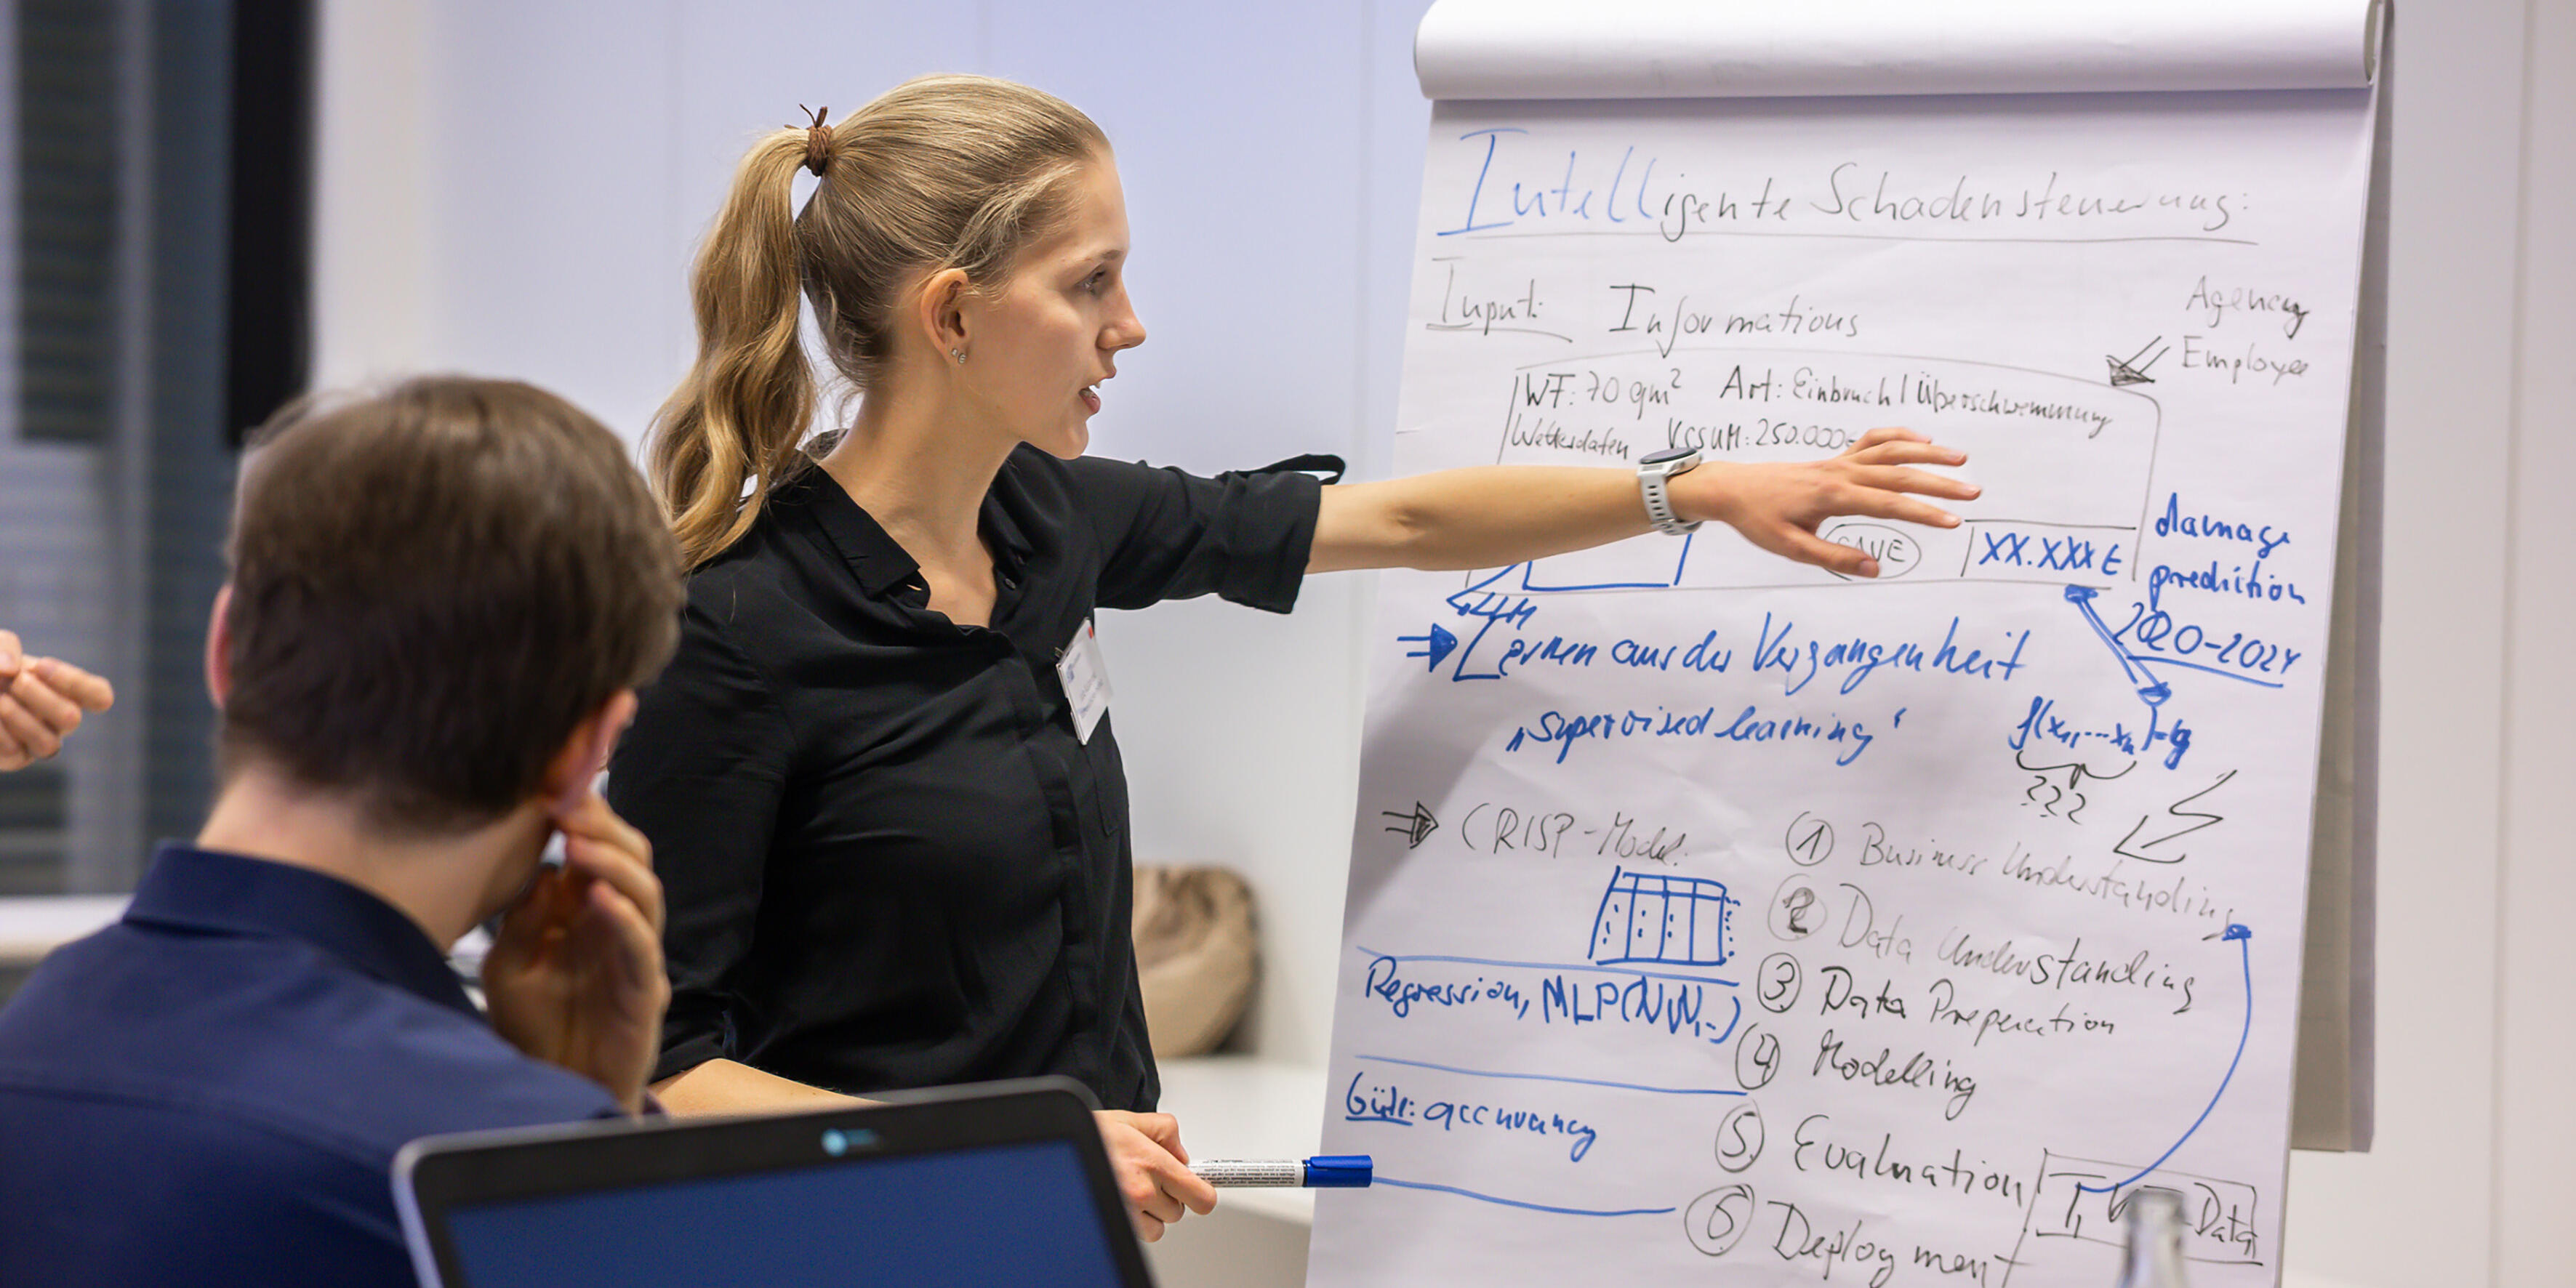 Intelligente Schadensteuerung:
Input: Informations
Agency
Employee
WF: 70 qm² Art: Einbruch | Überschwemmung
Wetterdaten VSSUM: 250.000€
SAVE XX.XXX €
damage
prediction
2020-2024
⇒ Lernen aus der Vergangenheit
„supervised learning“
f(x₁,...xₙ)=y
???
⇒ CRISP-Model:
① Business Understanding
② Data Understanding
③ Data Preperation
④ Modelling
⑤ Evaluation
⑥ Deployment
Regression, MLP(NN,..)
Güte: accuracy
Data